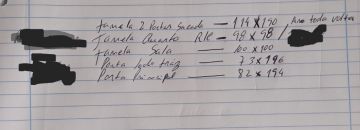 Janela 2 Portas Sacada — 114 x 190 Ano toda voltas
Janela Quarto R/C — 98 x 98 /
Janela Sala — 100 x 100
Porta lado traz — 73 x 196
Porta Principal — 82 x 194